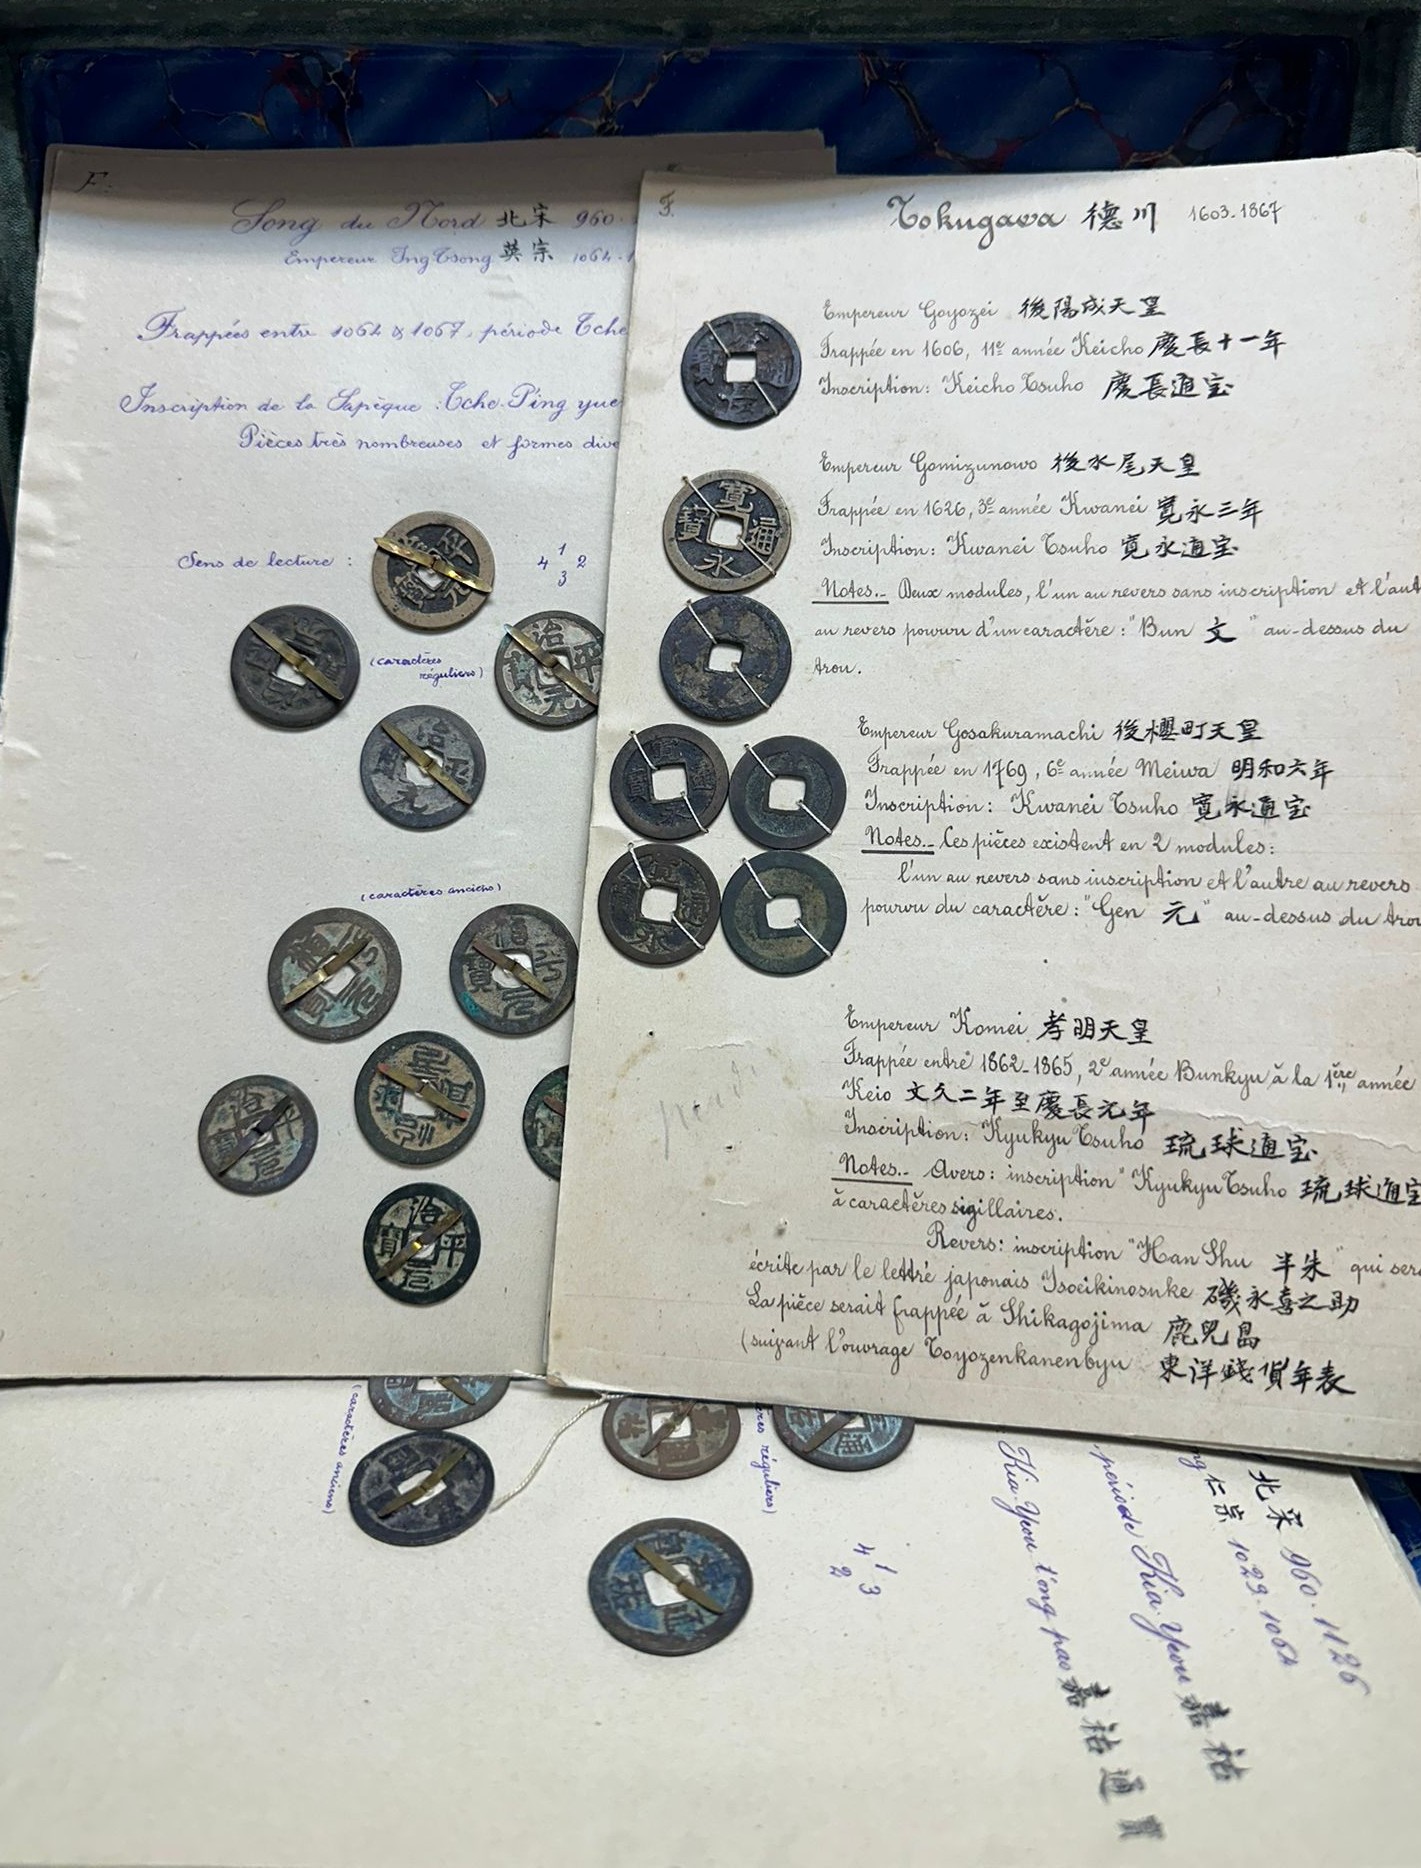 F.
Song du Nord 北宋 960
Empereur Ing Tsong 英宗 1064
Frappées entre 1064 & 1067, période Tche
Inscription de la Sapèque : Tche Ping yue
Pièces très nombreuses et formes dive
Sens de lecture :
1
4 2
3
(caractères
réguliers)
治平元寶
(caractères anciens)
F.
Tokugawa 德川 1603-1867
Empereur Goyozei 後陽成天皇
Frappée en 1606, 11e année Keicho 慶長十一年
Inscription: Keicho Tsuho 慶長通宝
Empereur Gomizunowo 後水尾天皇
Frappée en 1626, 3e année Kwanei 寛永三年
Inscription: Kwanei Tsuho 寛永通宝
Notes.- Deux modules, l'un au revers sans inscription et l'aut
au revers pourvu d'un caractère : "Bun 文" au-dessus du
trou.
寛永通寳
Empereur Gosakuramachi 後櫻町天皇
Frappée en 1769, 6e année Meiwa 明和六年
Inscription: Kwanei Tsuho 寛永通宝
Notes.- Ces pièces existent en 2 modules:
l'un au revers sans inscription et l'autre au revers
pourvu du caractère : "Gen 元" au-dessus du trou
Empereur Komei 孝明天皇
Frappée entre 1862-1865, 2e année Bunkyu à la 1ère année
Keio 文久二年至慶長元年
Inscription: Kyukyu Tsuho 琉球通宝
Notes.- Avers: inscription "Kyukyu Tsuho 琉球通宝
à caractères sigillaires.
Revers: inscription "Han Shu 半朱" qui sera
écrite par le lettré japonais Isoeikinosuke 磯永喜之助
La pièce serait frappée à Shikagojima 鹿児島
(suivant l'ouvrage Toyozenkanenbyu 東洋錢貨年表
(caractères anciens)
ères réguliers)
1
4 3
2
北宋 960-1126
ng 仁宗 1023-1064
période Kia Yeou 嘉祐
Kia Yeou t'ong pao 嘉祐通寳